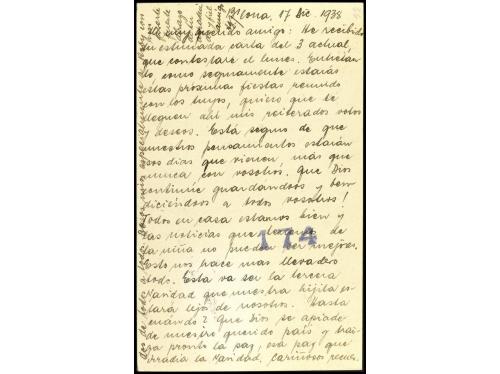 B/cona, 17 Dic. 1938
Mi muy querido amigo: He recibido
tu estimada carta del 3 actual,
que contestaré el lunes. Entretan-
to, como seguramente estarás
estas próximas fiestas reunido
con los tuyos, quiero que te
lleguen ahí mis reiterados votos
y deseos. Está seguro de que
nuestros pensamientos estarán
esos días que vienen, más que
nunca con vosotros. Que Dios
continúe guardándoos y ben-
diciéndoos a todos vosotros!
Todos en casa estamos bien y
las noticias que tenemos de
la niña no pueden ser mejores.
Esto nos hace mas llevadero
todo. Esta va ser la tercera
Navidad que nuestra hijita es-
tará lejos de nosotros. Hasta
cuándo? Que Dios se apiade
de nuestro querido país y trai-
ga pronto la paz, esa paz que
irradia la Navidad. Cariñosos recuer-
dos de todos a todos
y con
fuerte
abrazo
de tu
amigo
174